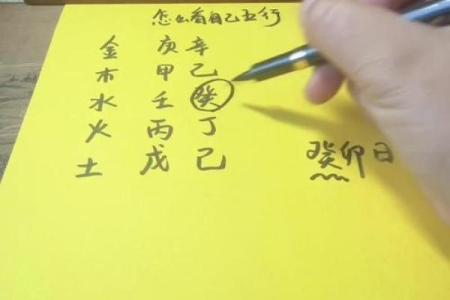 怎么看自己五行
金 庚 辛
木 甲 己
水 壬 癸
火 丙 丁
土 戊 己
癸卯日